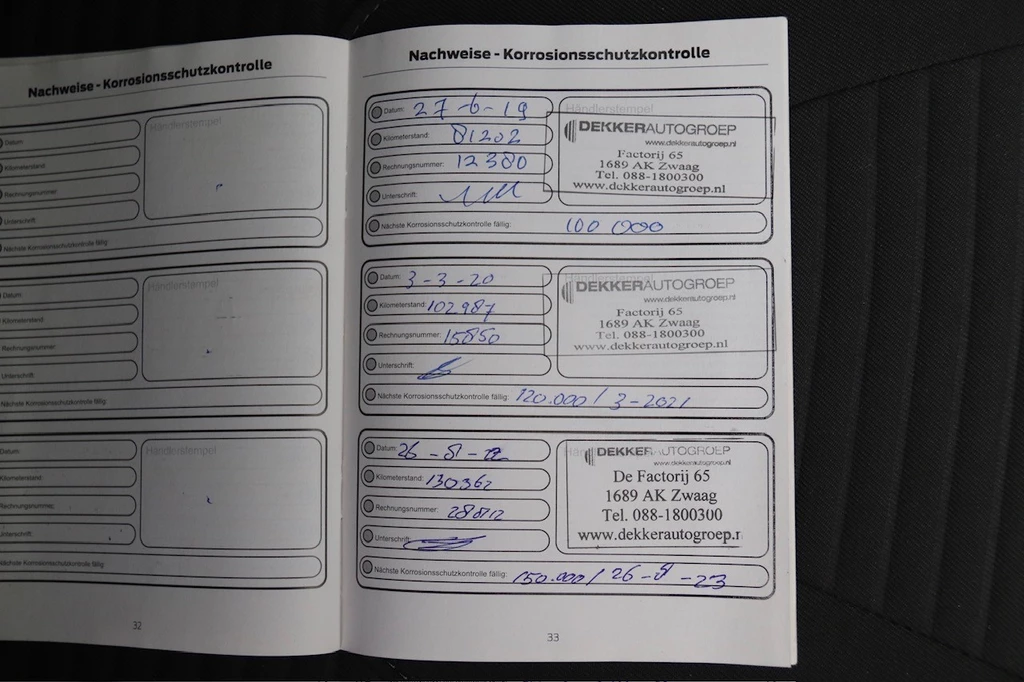 Nachweise - Korrosionsschutzkontrolle
Datum
Händlerstempel
Kilometerstand
Rechnungsnummer
Unterschrift:
Nächste Korrosionsschutzkontrolle fällig:
Datum:
Händlerstempel
Kilometerstand
Rechnungsnummer:
Unterschrift:
Nächste Korrosionsschutzkontrolle fällig:
Datum:
Händlerstempel
Kilometerstand
Rechnungsnummer:
Unterschrift:
Nächste Korrosionsschutzkontrolle fällig:
32
Nachweise - Korrosionsschutzkontrolle
Datum: 27-6-19
Kilometerstand: 81202
Rechnungsnummer: 12380
Unterschrift:
Händlerstempel
DEKKERAUTOGROEP
www.dekkerautogroep.nl
Factorij 65
1689 AK Zwaag
Tel. 088-1800300
www.dekkerautogroep.nl
Nächste Korrosionsschutzkontrolle fällig: 100 000
Datum: 3-3-20
Kilometerstand: 102987
Rechnungsnummer: 15850
Unterschrift:
Händlerstempel
DEKKERAUTOGROEP
www.dekkerautogroep.nl
Factorij 65
1689 AK Zwaag
Tel. 088-1800300
www.dekkerautogroep.nl
Nächste Korrosionsschutzkontrolle fällig: 120.000 / 3-2021
Datum: 26-8-22
Kilometerstand: 130362
Rechnungsnummer: 28812
Unterschrift:
DEKKERAUTOGROEP
www.dekkerautogroep.nl
De Factorij 65
1689 AK Zwaag
Tel. 088-1800300
www.dekkerautogroep.n
Nächste Korrosionsschutzkontrolle fällig: 150.000 / 26-8-23
33